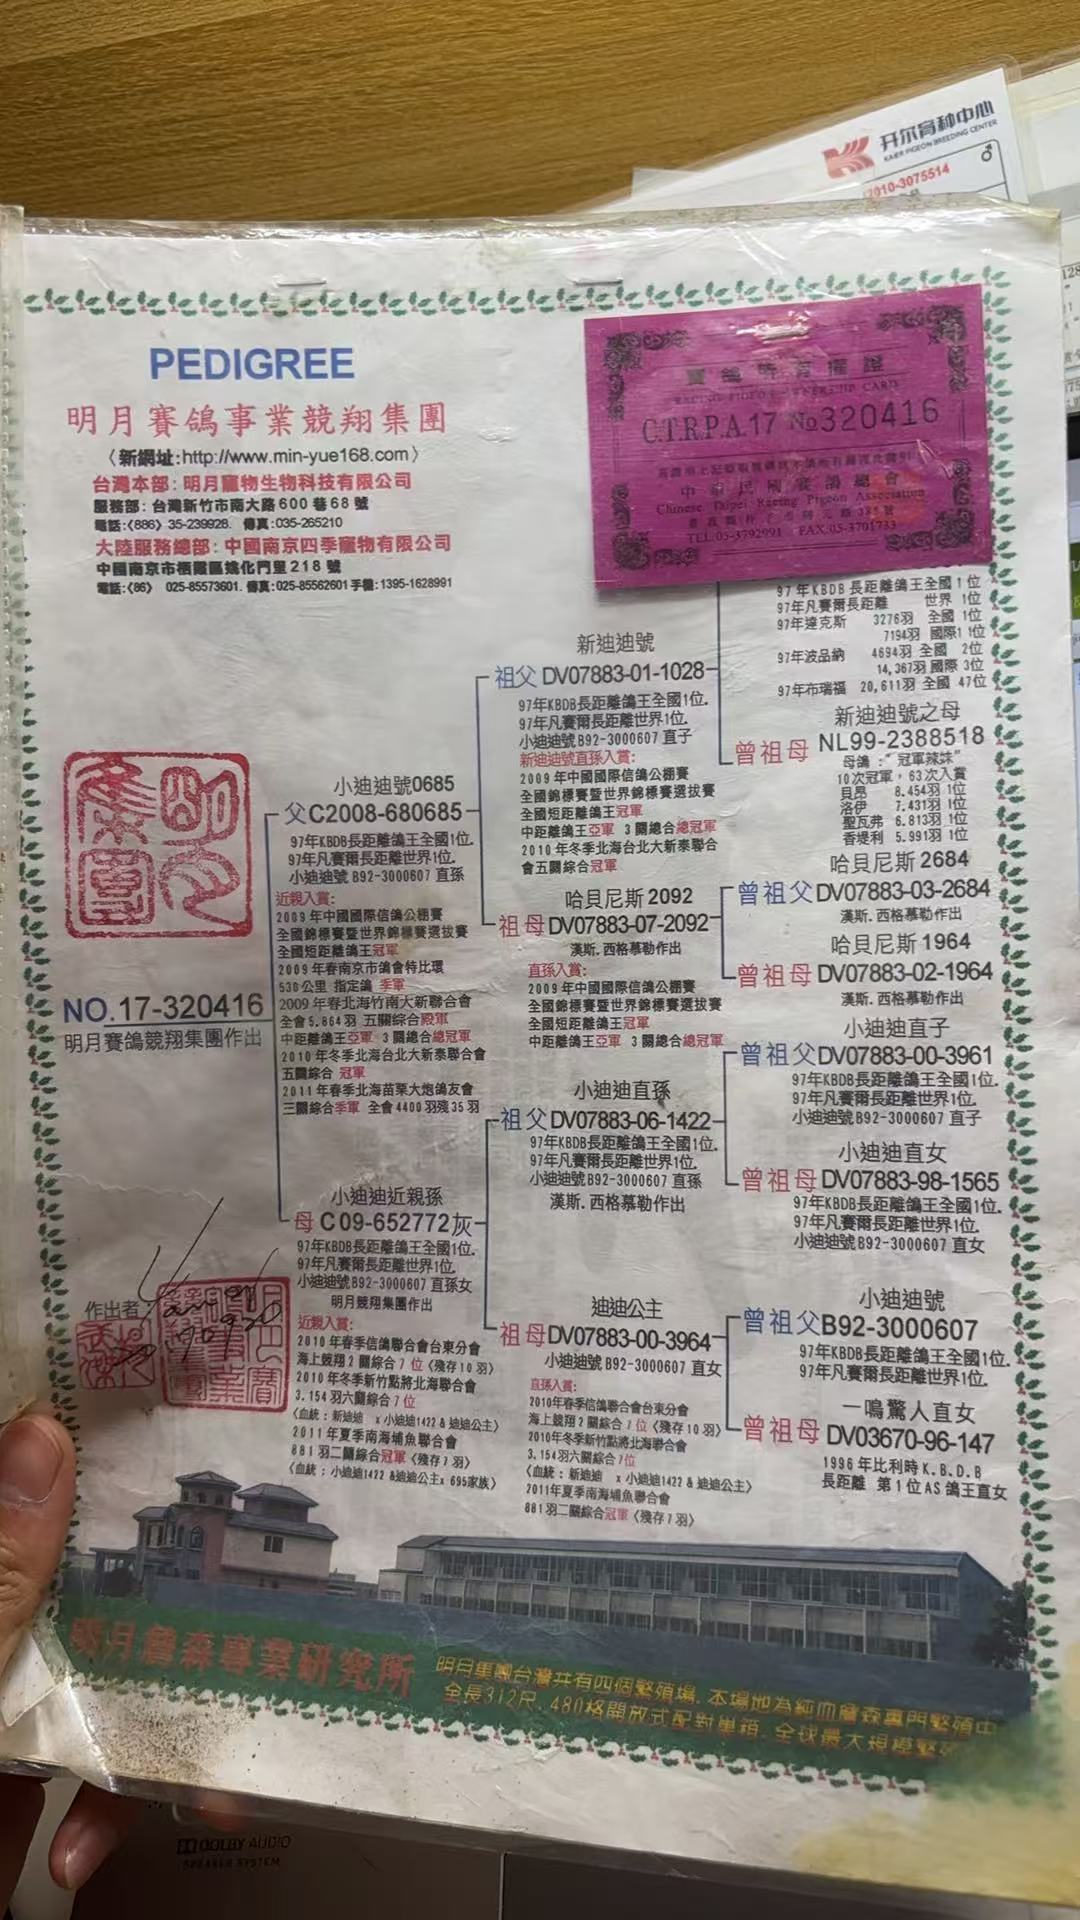 开尔育种中心
KAIER PIGEON BREEDING CENTER
♂
2010-3075514
PEDIGREE
明月賽鴿事業競翔集團
〈新網址:http://www.min-yue168.com〉
台灣本部: 明月寵物生物科技有限公司
服務部: 台灣新竹市南大路600巷68號
電話:〈886〉35-239928. 傳真:035-265210
大陸服務總部: 中國南京四季寵物有限公司
中國南京市栖霞區姚化門里218號
電話:〈86〉 025-85573601. 傳真:025-85562601 手機:1395-1628991
賽鴿所有權證
RACING PIGEON OWNERSHIP CARD
C.T.R.P.A.17 No320416
中華民國賽鴿總會
Chinese Taipei Racing Pigeon Association
TEL.05-3792991 FAX.05-3701733
97年KBDB長距離鴿王全國1位
97年凡賽爾長距離 世界 1位
97年達克斯 3276羽 全國 1位
7194羽 國際1 1位
97年波品納 4694羽 全國 2位
14,367羽 國際 3位
97年布瑞福 20,611羽 全國 47位
新迪迪號之母
曾祖母 NL99-2388518
母鴿 :"冠軍辣妹"
10次冠軍,63次入賞
貝昂 8.454羽 1位
洛伊 7.431羽 1位
聖瓦弗 6.813羽 1位
香堤利 5.991羽 1位
新迪迪號
祖父 DV07883-01-1028
97年KBDB長距離鴿王全國1位.
97年凡賽爾長距離世界1位.
小迪迪號 B92-3000607 直子
新迪迪號直孫入賞:
2009年中國國際信鴿公棚賽
全國錦標賽暨世界錦標賽選拔賽
全國短距離鴿王冠軍
中距離鴿王亞軍 3關總合總冠軍
2010年冬季北海台北大新泰聯合
會五關綜合冠軍
小迪迪號0685
父C2008-680685
97年KBDB長距離鴿王全國1位.
97年凡賽爾長距離世界1位.
小迪迪號 B92-3000607 直孫
近親入賞:
2009年中國國際信鴿公棚賽
全國錦標賽暨世界錦標賽選拔賽
全國短距離鴿王冠軍
2009年春南京市鴿會特比環
530公里 指定鴿 季軍
2009年春北海竹南大新聯合會
全會5.864羽 五關綜合殿軍
中距離鴿王亞軍 3關總合總冠軍
2010年冬季北海台北大新泰聯合會
五關綜合 冠軍
2011年春季北海苗栗大炮鴿友會
三關綜合季軍 全會4400羽殘35羽
哈貝尼斯 2092
祖母DV07883-07-2092
漢斯.西格慕勒作出
直孫入賞:
2009年中國國際信鴿公棚賽
全國錦標賽暨世界錦標賽選拔賽
全國短距離鴿王冠軍
中距離鴿王亞軍 3關總合總冠軍
哈貝尼斯 2684
曾祖父DV07883-03-2684
漢斯.西格慕勒作出
哈貝尼斯 1964
曾祖母DV07883-02-1964
漢斯.西格慕勒作出
NO.17-320416
明月賽鴿競翔集團作出
小迪迪直子
曾祖父DV07883-00-3961
97年KBDB長距離鴿王全國1位.
97年凡賽爾長距離世界1位.
小迪迪號 B92-3000607 直子
小迪迪直孫
祖父DV07883-06-1422
97年KBDB長距離鴿王全國1位.
97年凡賽爾長距離世界1位.
小迪迪號B92-3000607 直孫
漢斯.西格慕勒作出
小迪迪直女
曾祖母DV07883-98-1565
97年KBDB長距離鴿王全國1位.
97年凡賽爾長距離世界1位.
小迪迪號B92-3000607 直女
小迪迪近親孫
母C09-652772灰
97年KBDB長距離鴿王全國1位.
97年凡賽爾長距離世界1位.
小迪迪號B92-3000607 直孫女
明月競翔集團作出
近親入賞:
2010年春季信鴿聯合會台東分會
海上競翔2關綜合7位〈殘存10羽〉
2010年冬季新竹點將北海聯合會
3.154羽六關綜合7位
〈血統:新迪迪 x小迪迪1422 & 迪迪公主〉
2011年夏季南海埔魚聯合會
881羽二關綜合冠軍〈殘存7羽〉
〈血統:小迪迪1422 &迪迪公主x 695家族〉
迪迪公主
祖母DV07883-00-3964
小迪迪號 B92-3000607 直女
直孫入賞:
2010年春季信鴿聯合會台東分會
海上競翔2關綜合7位〈殘存10羽〉
2010年冬季新竹點將北海聯合會
3.154羽六關綜合7位
〈血統:新迪迪 x小迪迪1422 & 迪迪公主〉
2011年夏季南海埔魚聯合會
881羽二關綜合冠軍〈殘存7羽〉
小迪迪號
曾祖父B92-3000607
97年KBDB長距離鴿王全國1位.
97年凡賽爾長距離世界1位.
一鳴驚人直女
曾祖母DV03670-96-147
1996年比利時K.B.D.B
長距離 第1位AS鴿王直女
作出者:
明月詹森專業研究所
明月集團台灣共有四個繁殖場.本場地為純血詹森專門繁殖中
全長312尺.480格開放式配對巢箱.全球最大規模繁殖
DOLBY AUDIO
SPEAKER SYSTEM